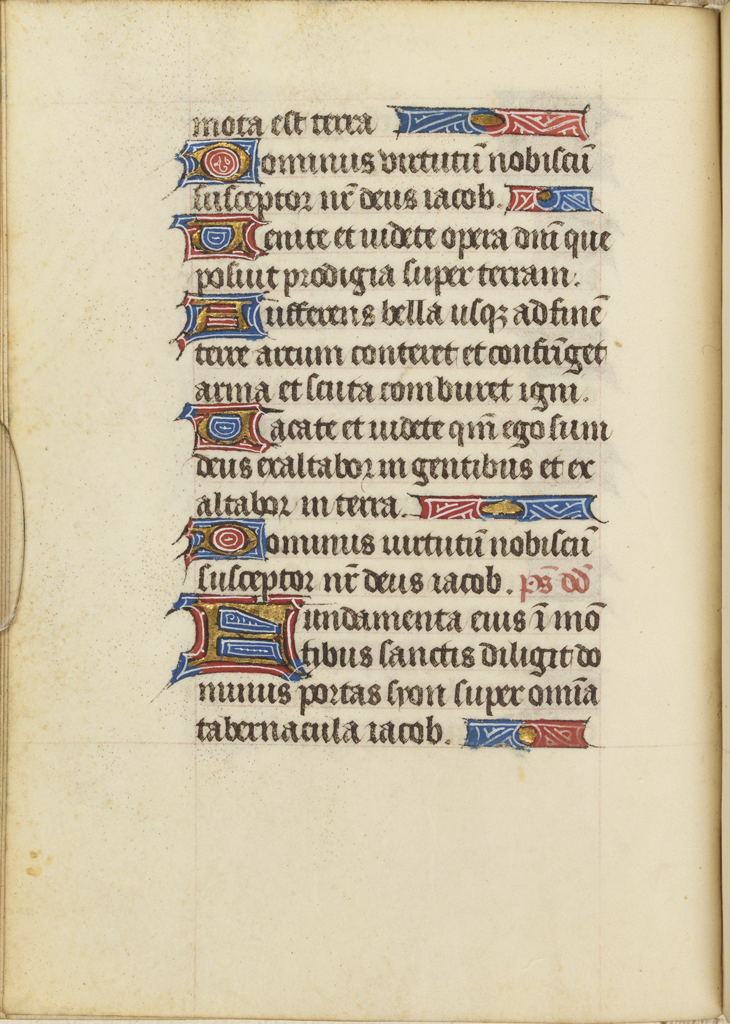 mota est terra
Dominus virtutū nobiscū
susceptor nr̄ deus iacob.
Venite et videte opera dn̄i que
posuit prodigia super terram.
Aufferens bella usqꝫ ad finē
terre arcum conteret et confringet
arma et scuta comburet igni.
Vacate et videte qm̄ ego sum
deus exaltabor in gentibus et ex
altabor in terra.
Dominus virtutū nobiscū
susceptor nr̄ deus iacob. ps̄ dd̄
Fundamenta eius ī mō
tibus sanctis diligit do
minus portas syon super om̄ia
tabernacula iacob.